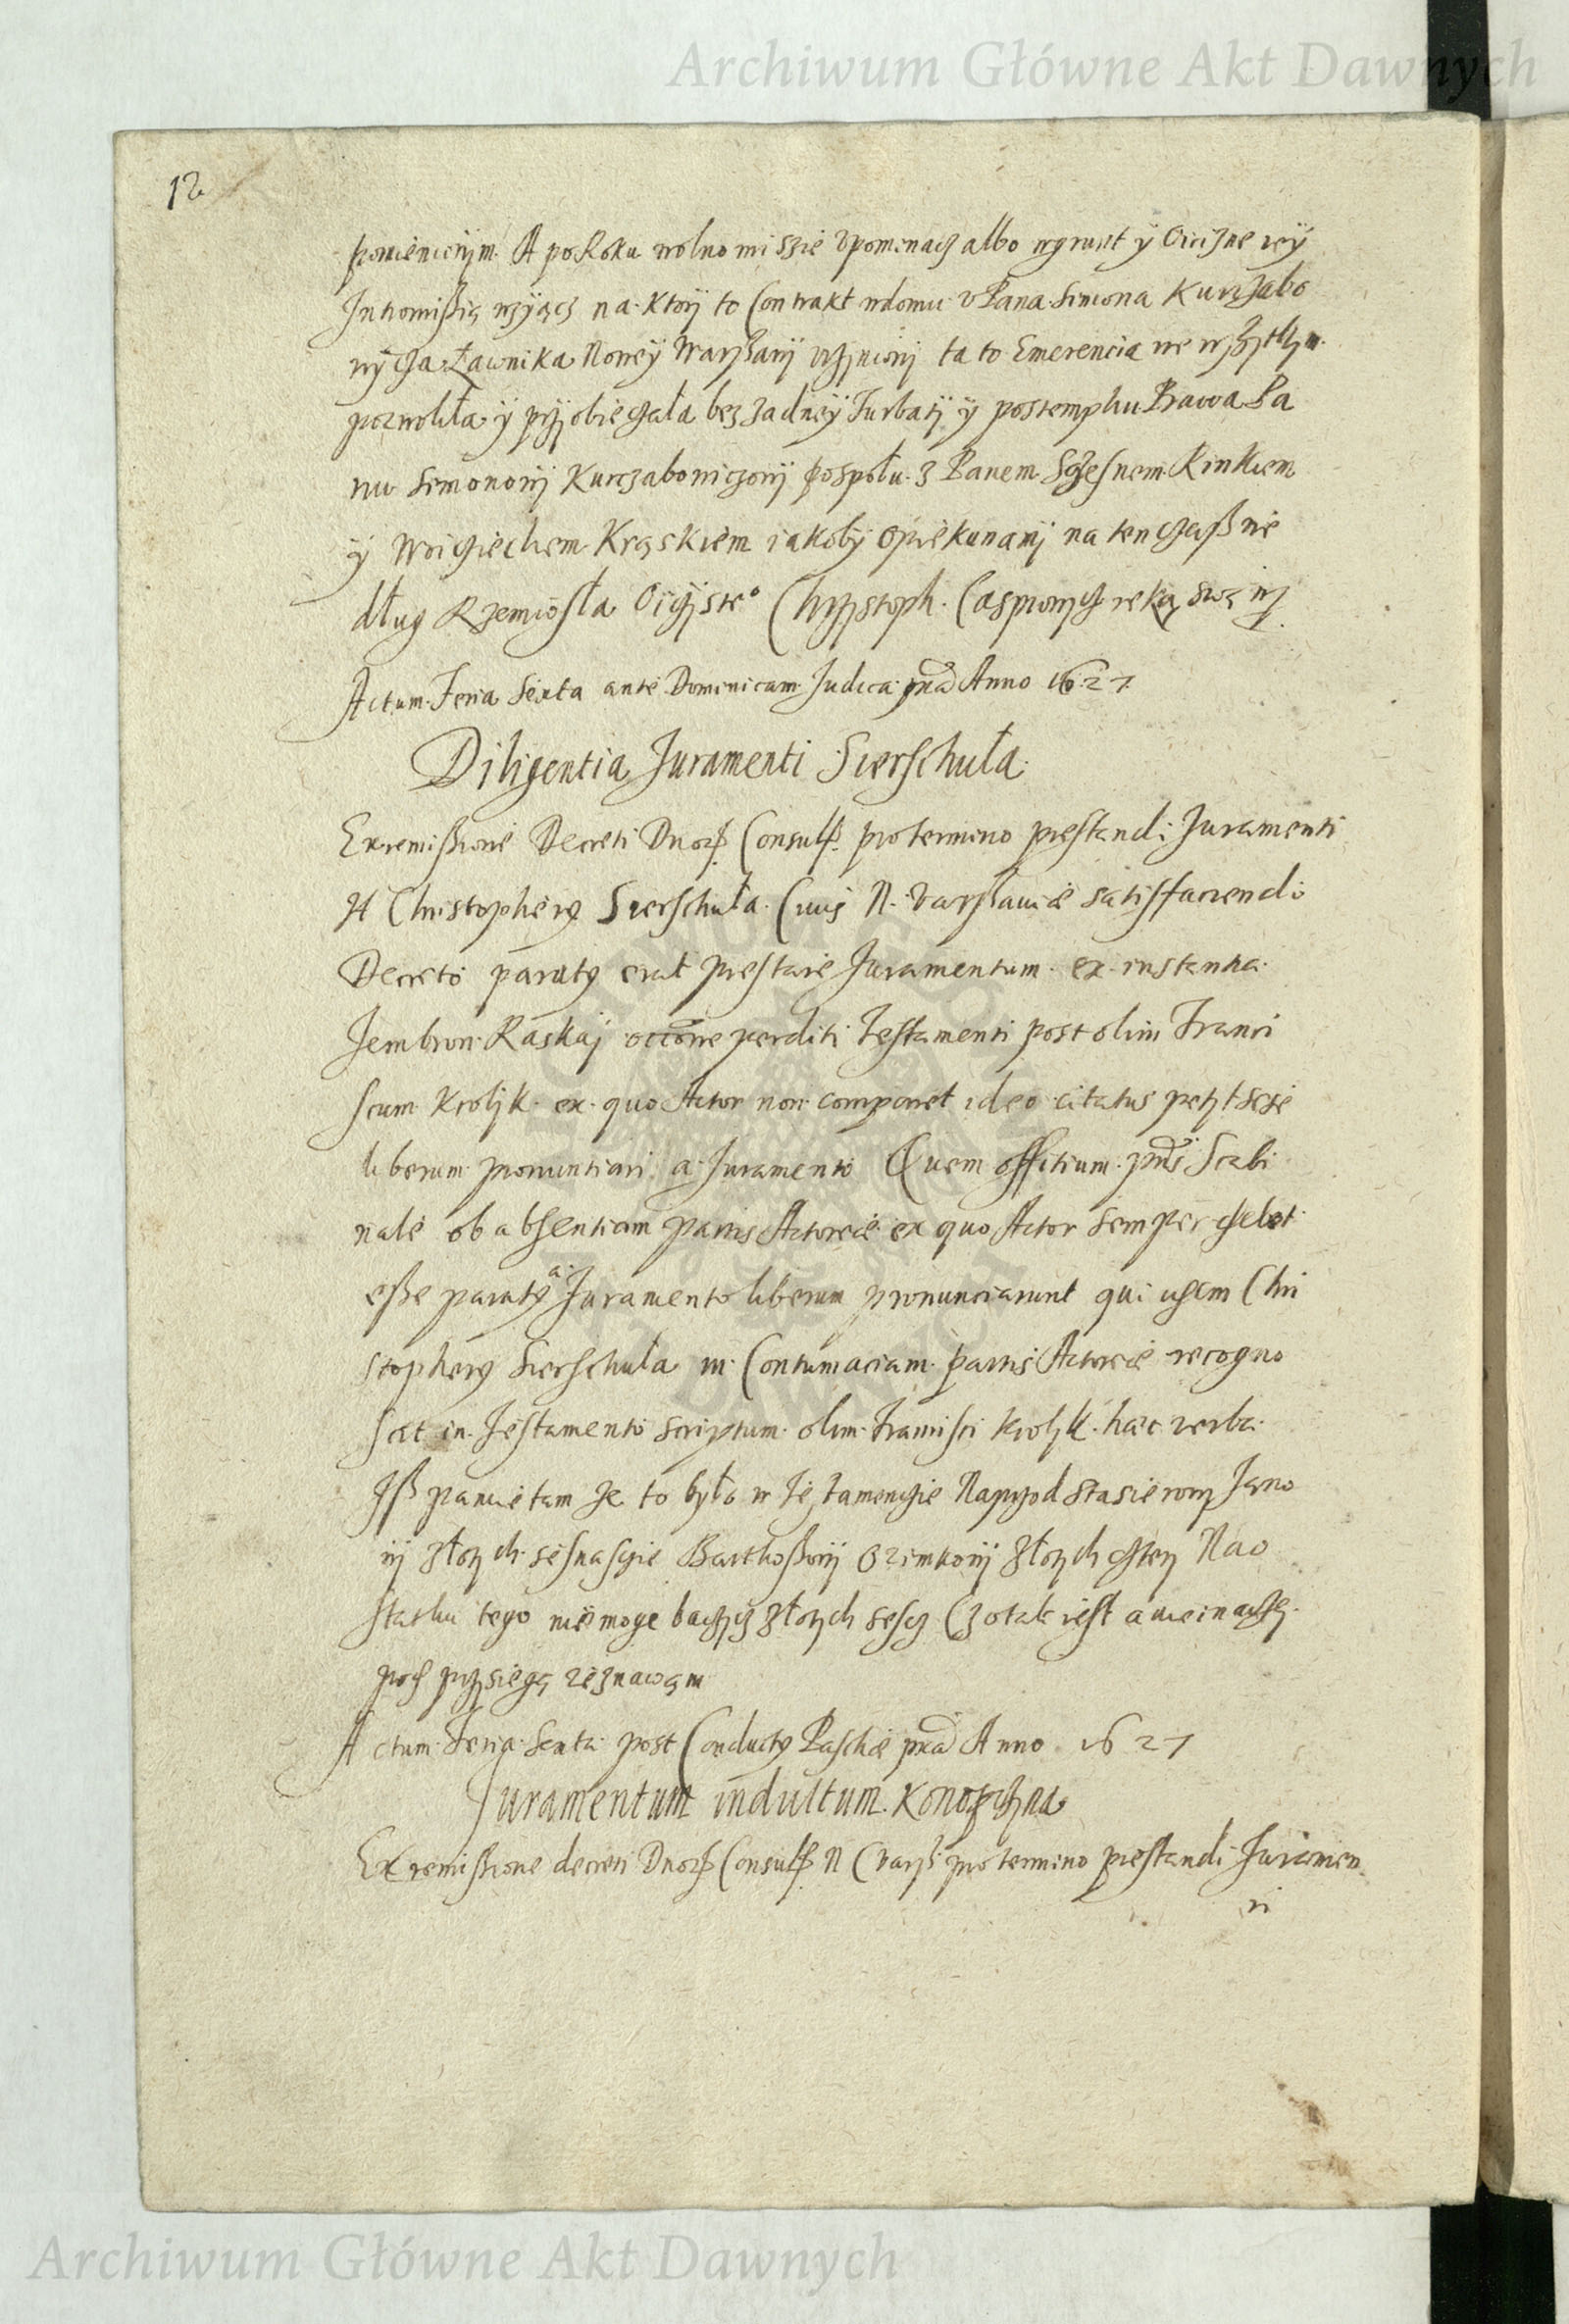 Archiwum Główne Akt Dawnych
12
A po Roku wolno mi szie Vpominacz albo w grunt ÿ Oiczÿne ieÿ
Intromißią wzÿącz na Ktorÿ to Contrakt w domu v Pana Simona Kurczabo
wÿcza Ławnika Noweÿ Warszawÿ vczÿnionÿ ta to Emerencia we wszÿtkÿm
pozwoliła ÿ przÿobieczala bez zadneÿ Turbatÿ ÿ postempku Prawa Pa
nu Simonowÿ Kurczabowiczowÿ pospołu z Panem Sczesnem Kinkiem
ÿ Woiciechem Kraskiem iakobÿ Opiekunamÿ na ten czaß we
dług Rzemiosła Oiczÿsteo Chrzÿstoph Casprowÿcz reką swą
Actum Feria Sexta ante Dominicam Judica Anno 1627
Diligentia Juramenti Sierschuła
Ex remißione Decreti Dnorum Consulum pro termino prestandi Juramenti
H Christopherus Sierschuła Civis N. Varßaviæ satisfaciendo
Decreto paratus erat prestare Juramentum ex instantia
Raskaj occone perditi Testamenti post olim Franci
scum Krolÿk ex quo Actor non comparet ideo citatus petÿt sese
liberum pronuntiari a Juramento Quem officium pns Scabi
nale ob absentiam partis Actoreæ ex quo Actor semper debet
eße paratus a Juramento liberum pronunciarunt qui idem Chri
stopherus Sierschuła in Contumaciam partis Actoreæ recogno
scit in Testamento scriptum olim Francisci Krolÿk hæc verba
Iß pamietam ze to było w Testamencie Naprzod Stasierowÿ Jano
wÿ złotÿch sesnascie Barthoßowÿ Ozimkowÿ złotÿch cztery Na o
statku tego nie moge baczÿcz złotÿch sescz Czo tak iest a nie inaczeÿ
pod przÿsiegą zeznawam
Actum Feria Sexta post Conductus Paschæ Anno 1627
Juramentum indultum
Ex remißione decreti Dnorum Consulum N Varß pro termino prestandi Juramen
ti
Archiwum Główne Akt Dawnych